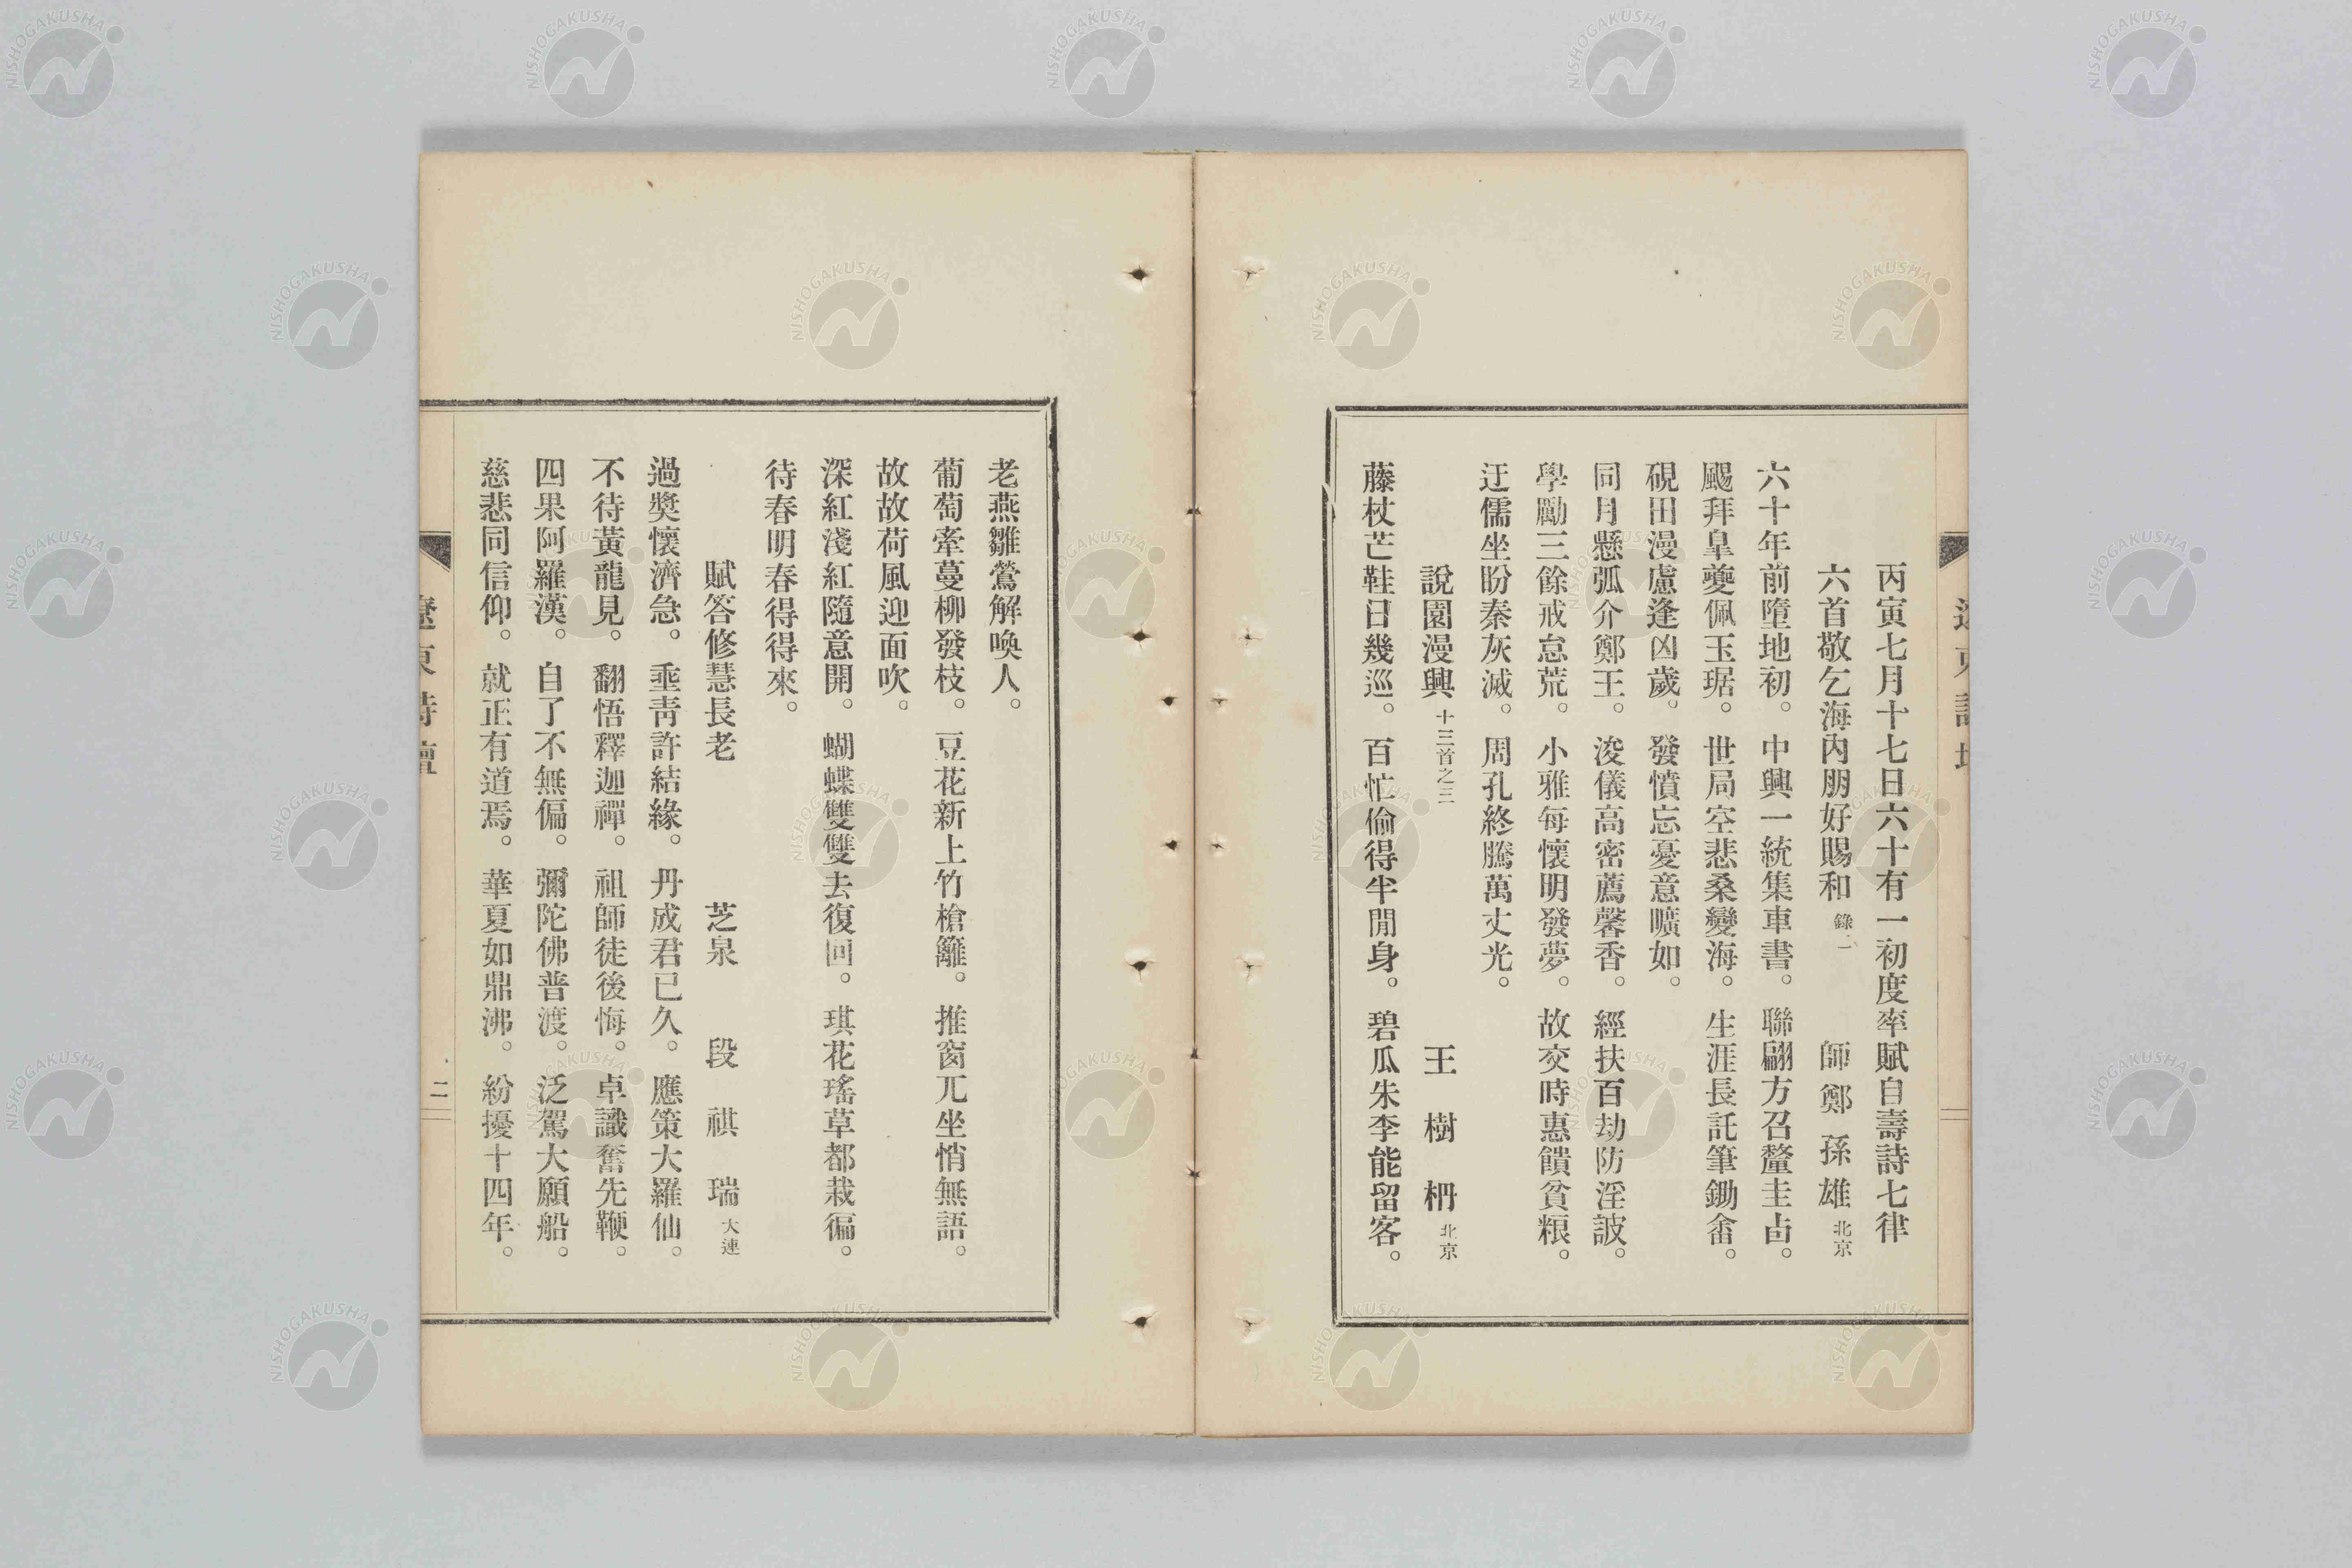 丙寅七月十七日六十有一初度率賦自壽詩七律
六首敬乞海內朋好賜和 錄二 師鄭 孫雄 北京
六十年前墮地初。中興一統集車書。聯翩方召釐圭卣。
颺拜臯夔佩玉琚。世局空悲桑變海。生涯長託筆鋤畬。
硯田漫慮逢凶歲。發憤忘憂意曠如。
同月懸弧介鄭王。浚儀高密薦馨香。經扶百劫防淫詖。
學勵三餘戒怠荒。小雅每懷明發夢。故交時惠饋貧粮。
迂儒坐盼秦灰滅。周孔終騰萬丈光。
說園漫興 十三首之三 王樹枏 北京
藤杖芒鞋日幾巡。百忙偷得半閒身。碧瓜朱李能留客。
老燕雛鶯解喚人。
葡萄牽蔓柳發枝。豆花新上竹槍籬。推窗兀坐悄無語。
故故荷風迎面吹。
深紅淺紅隨意開。蝴蝶雙雙去復回。琪花瑤草都栽徧。
待春明春得得來。
賦答修慧長老 芝泉 段祺瑞 大連
過獎懷濟急。垂靑許結緣。丹成君已久。應策大羅仙。
不待黃龍見。翻悟釋迦禪。祖師徒後悔。卓識奮先鞭。
四果阿羅漢。自了不無偏。彌陀佛普渡。泛駕大願船。
慈悲同信仰。就正有道焉。華夏如鼎沸。紛擾十四年。
遼東詩壇
二